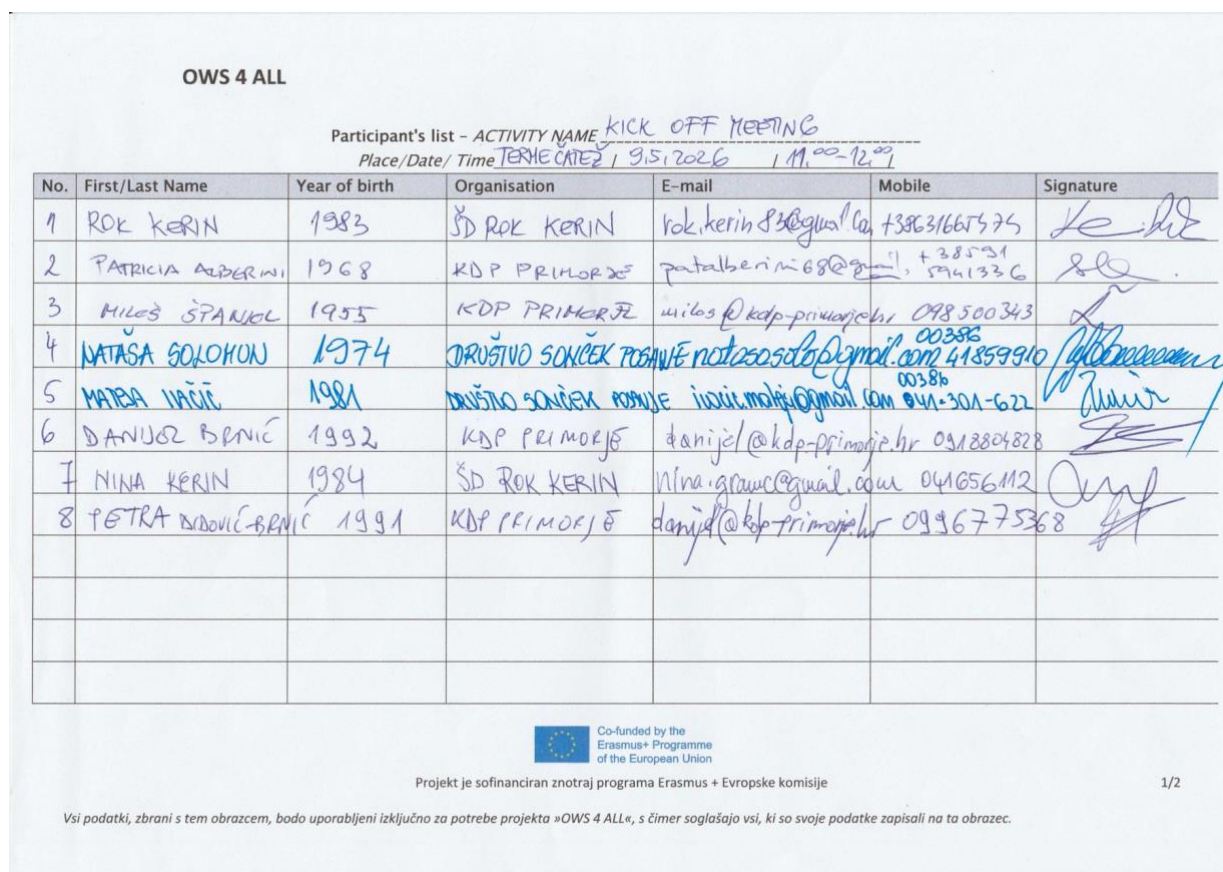 OWS 4 ALL
Participant's list – ACTIVITY NAME KICK OFF MEETING
Place/Date/ Time TERME ČATEŽ / 9.5.2026 / 11.00-12.00/
No. First/Last Name Year of birth Organisation E-mail Mobile Signature
1 ROK KERIN 1983 ŠD ROK KERIN +38631665575
2 PATRICIA ALBERINI 1968 KDP PRIMORJE patalberini68@gmail. +38591 5941336
3 MILOŠ ŠPANJOL 1955 KDP PRIMORJE milos@kdp-primorje.hr 098500343
4 NATAŠA SOLOMUN 1974 DRUŠTVO SONČEK POSAVJE natasasolo@gmail.com 00386 41859910
5 MATEJA 1981 DRUŠTVO SONČEK POSAVJE 00386 041-301-622
6 DANIJEL BRNIĆ 1992 KDP PRIMORJE danijel@kdp-primorje.hr 0918804828
7 NINA KERIN 1984 ŠD ROK KERIN 041656112
8 PETRA 1991 KDP PRIMORJE danijel@kdp-primorje.hr 0996775368
Co-funded by the
Erasmus+ Programme
of the European Union
Projekt je sofinanciran znotraj programa Erasmus + Evropske komisije 1/2
Vsi podatki, zbrani s tem obrazcem, bodo uporabljeni izključno za potrebe projekta »OWS 4 ALL«, s čimer soglašajo vsi, ki so svoje podatke zapisali na ta obrazec.